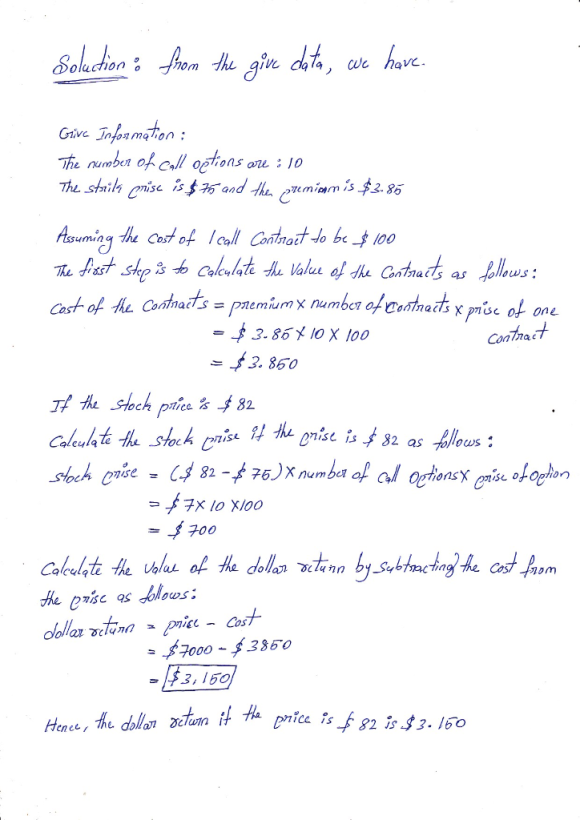 Solution : from the give data, we have.
Give Information :
The number of call options are : 10
The strik prise is $75 and the premium is $3.85
Assuming the cost of 1 call Contract to be $100
The first step is to calculate the value of the contracts as follows :
Cost of the Contracts = premium x number of contracts x prise of one
contract
= $3.85 x 10 x 100
= $3.850
If the stock price is $82
Calculate the stock prise if the prise is $82 as follows :
stock prise = ($82 - $75) x number of call options x prise of option
= $7 x 10 x 100
= $700
Calculate the value of the dollar return by subtracting the cost from
the prise as follows :
dollar return = price - cost
= $7000 - $3850
= $3,150
Hence, the dollar return if the price is $82 is $3.150